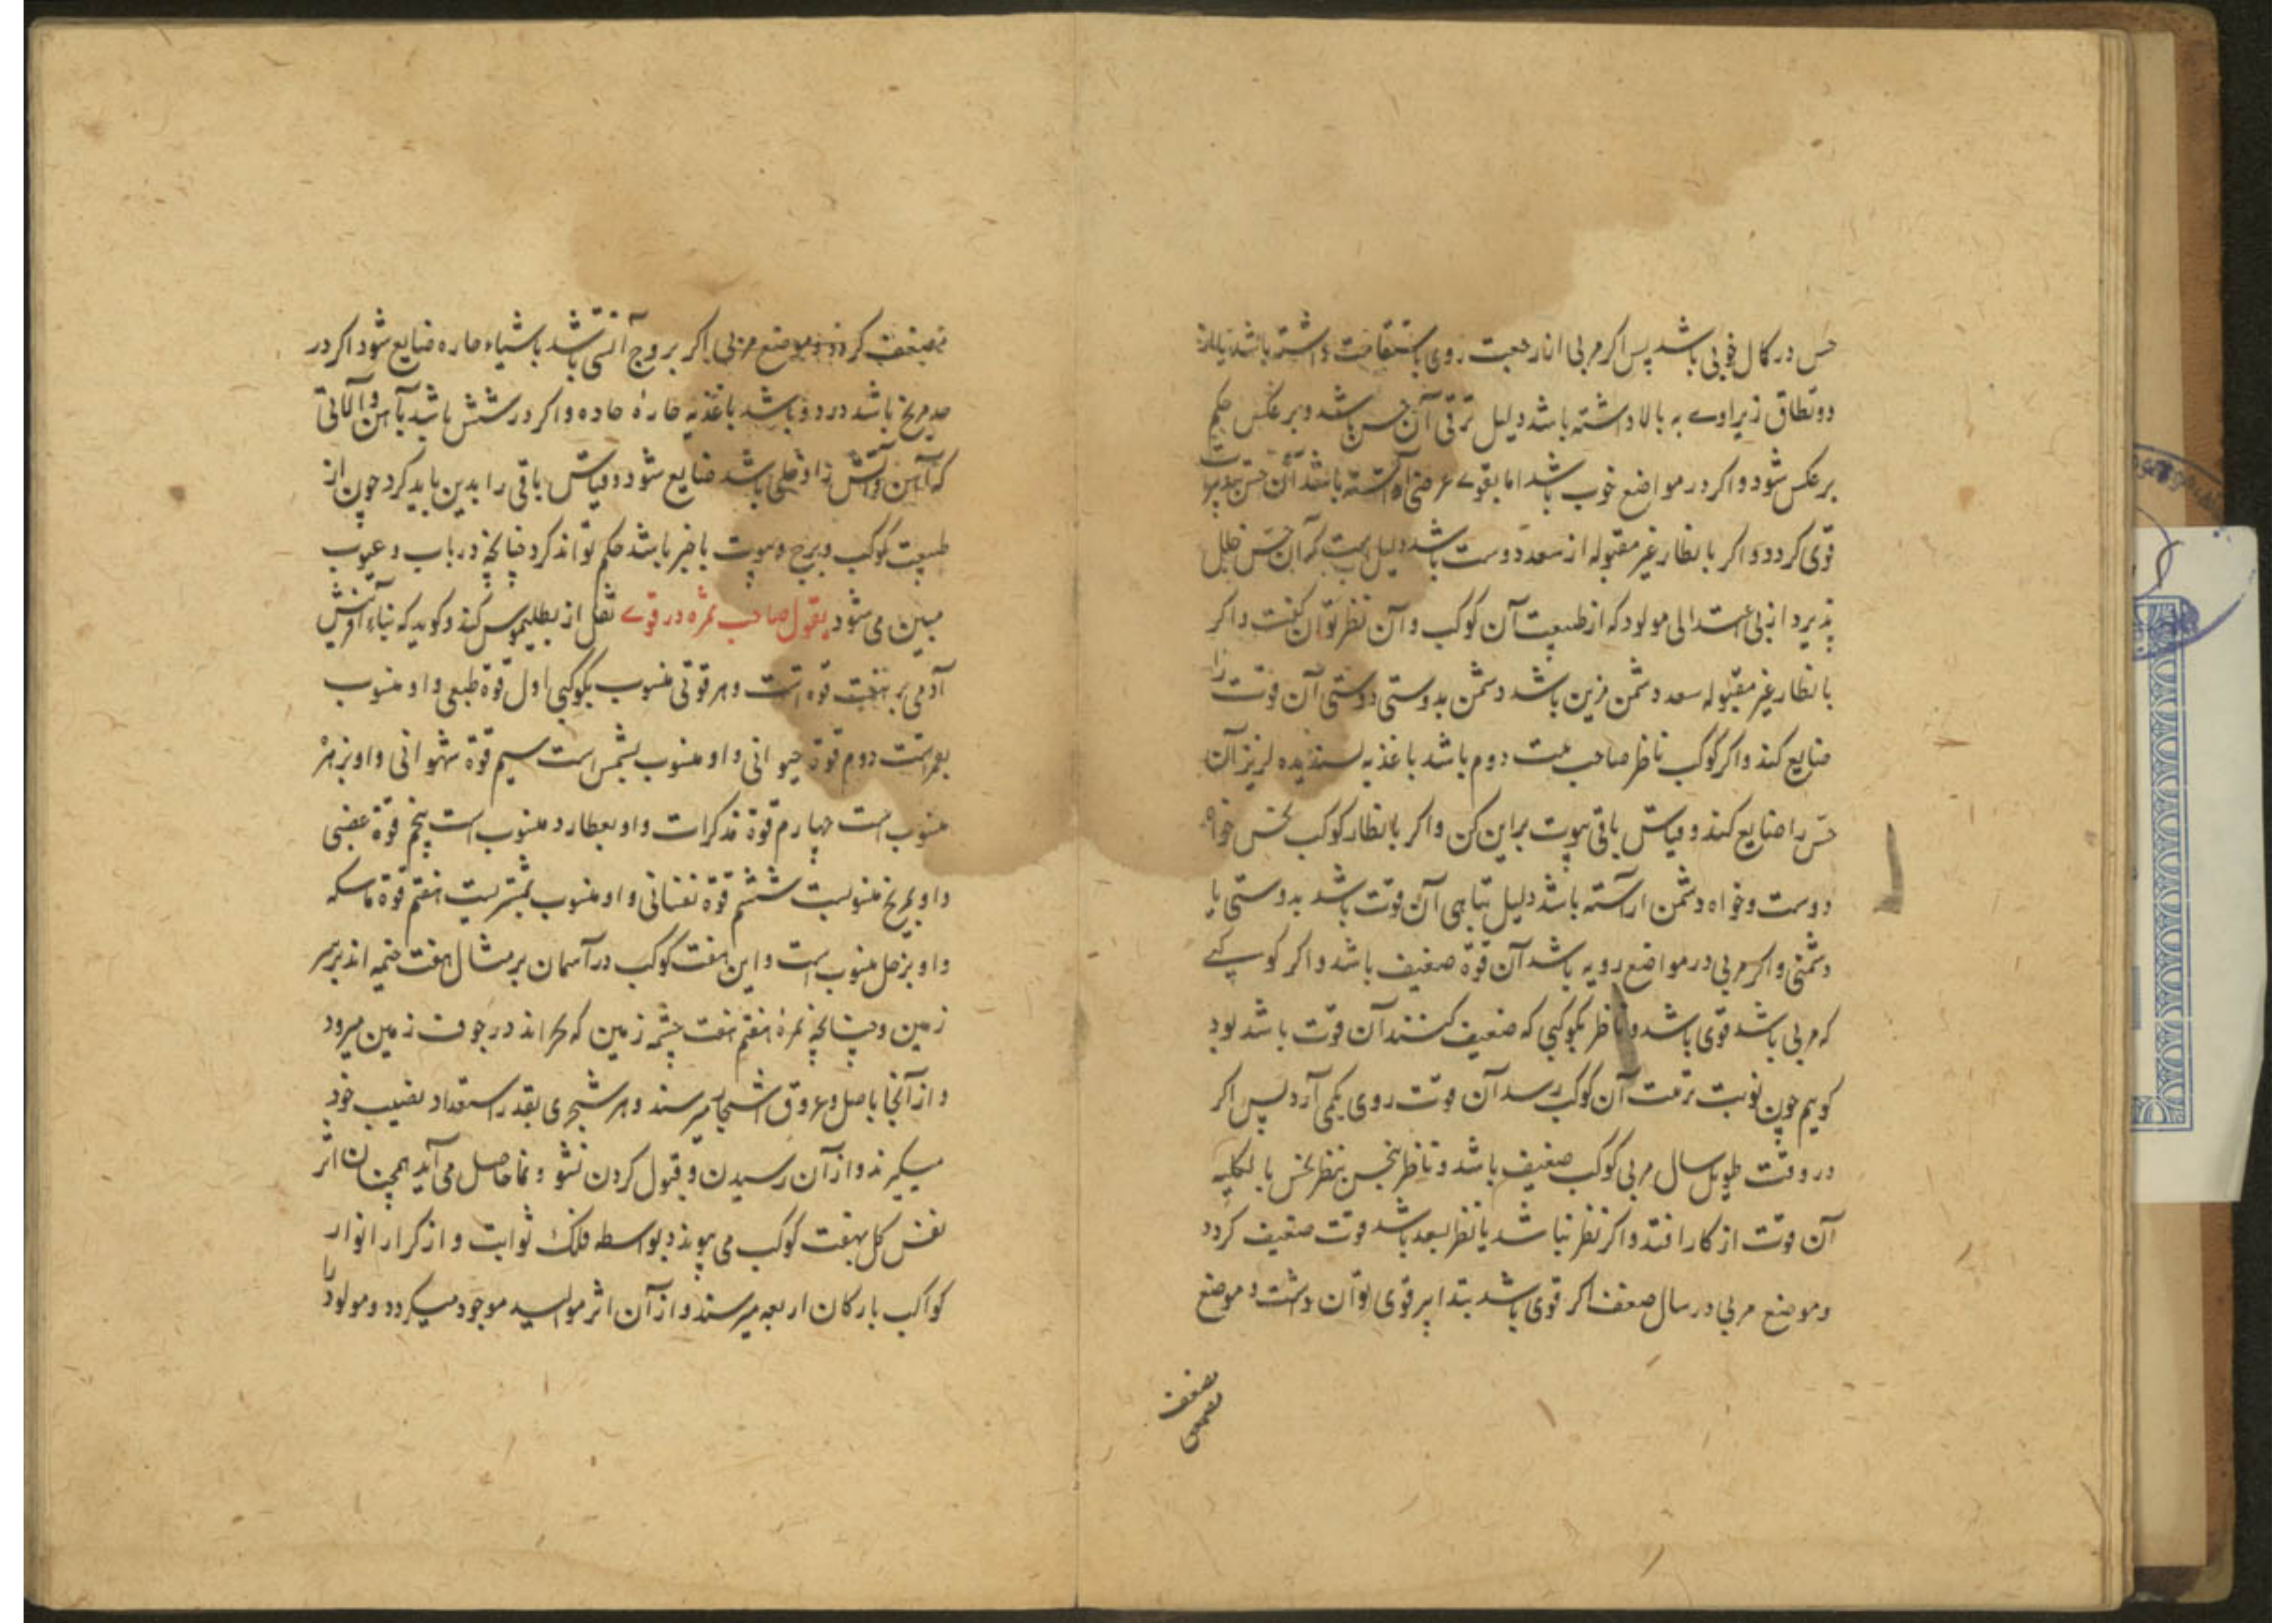 حس در کمال خوبی باشد پس اکر مربی از رجعت روی باستقامت داشته باشد یا از
دو نطاق زیر اوے به بالا داشته باشد دلیل ترقی آن حس باشد و بر عکس حکم
بر عکس شود و اکر در مواضع خوب باشد اما بقوے عرضی آراسته باشد آن حس
قوی کردد و اکر بانظار غیر مقبوله از سعد دوست باشد دلیل است که آن حس خلل
پذیرد از بی اعتدالی مولود که از طبیعت آن کوکب و آن نظر توان کفت و اکر
بانظار غیر مقبوله سعد دشمن مزین باشد دشمن بدوستی دوستی آن قوت را
ضایع کند و اکر کوکب ناظر صاحب بیت دوم باشد باغذیه پسندیده لریز آن
حس را ضایع کند و قیاس باقی بیوت براین کن و اکر بانظار کوکب نحس خواه
دوست و خواه دشمن آراسته باشد دلیل تباهی آن قوت باشد بدوستی یا
دشمنی و اکر مربی در مواضع رویه باشد آن قوة ضعیف باشد و اکر کوکبے
که مربی باشد قوی باشد و ناظر بکوکبی که ضعیف کنند آن قوت باشد بود
کویم چون نوبت تربیت آن کوکب رسد آن قوت روی بکمی آرد پس اکر
در وقت طویل سال مربی کوکب ضعیف باشد و ناظر بنحس بنظر نحس بالکلیه
آن قوت از کار افتد و اکر نظر نباشد یا نظر بسعد باشد قوت ضعیف کردد
و موضع مربی در سال ضعف اکر قوی باشد بتدابیر قوی توان داشت و موضع
بضعف
ضعف کردد و موضع مربی اکر بروج آتشی باشد باشیاء حاره ضایع شود اکر در
حد مریخ باشد در دو باشد باغذیه حارۀ حاده و اکر در شش باشد بآهن و آلاتی
که آهن و آتش را دخلی باشد ضایع شود و قیاس باقی را بدین باید کرد چون از
طبیعت کوکب و برج و بیوت با خبر باشد حکم تواند کرد چنانچه در باب و عیوب
مبین می شود بقول صاحب ثمره در قوے نقل از بطلیموس کند و کوید که بناء آفرینش
آدمی بر هفت قوه است و هر قوتی منسوب بکوکبی اول قوة طبعی و او منسوب
بقمر است دوم قوة حیوانی و او منسوب بشمس است سیم قوة شهوانی و او بزهره
منسوب است چهارم قوة مذکرات و او بعطارد منسوب است پنجم قوة غضبی
و او بمریخ منسوبست ششم قوة نفسانی و او منسوب بمشتریست هفتم قوة ماسکه
و او بزحل منسوب است و این هفت کوکب در آسمان بر مثال هفت خیمه اند بر سر
زمین و چنانچه ثمرۀ هفتم هفت چشمه زمین که مجراند در جوف زمین میرود
و از آنجا باصل و عروق اشجار میرسند و هر شجری بقدر استعداد نصیب خود
میکیرند و از آن رسیدن و قبول کردن نشو و نما حاصل می آید همچنان اثر
نفس کل بهفت کوکب می پیوندد بواسطه فلک ثوابت و از کرار انوار
کواکب بارکان اربعه میرسند و از آن اثر موالید موجود میکردد و مولود را